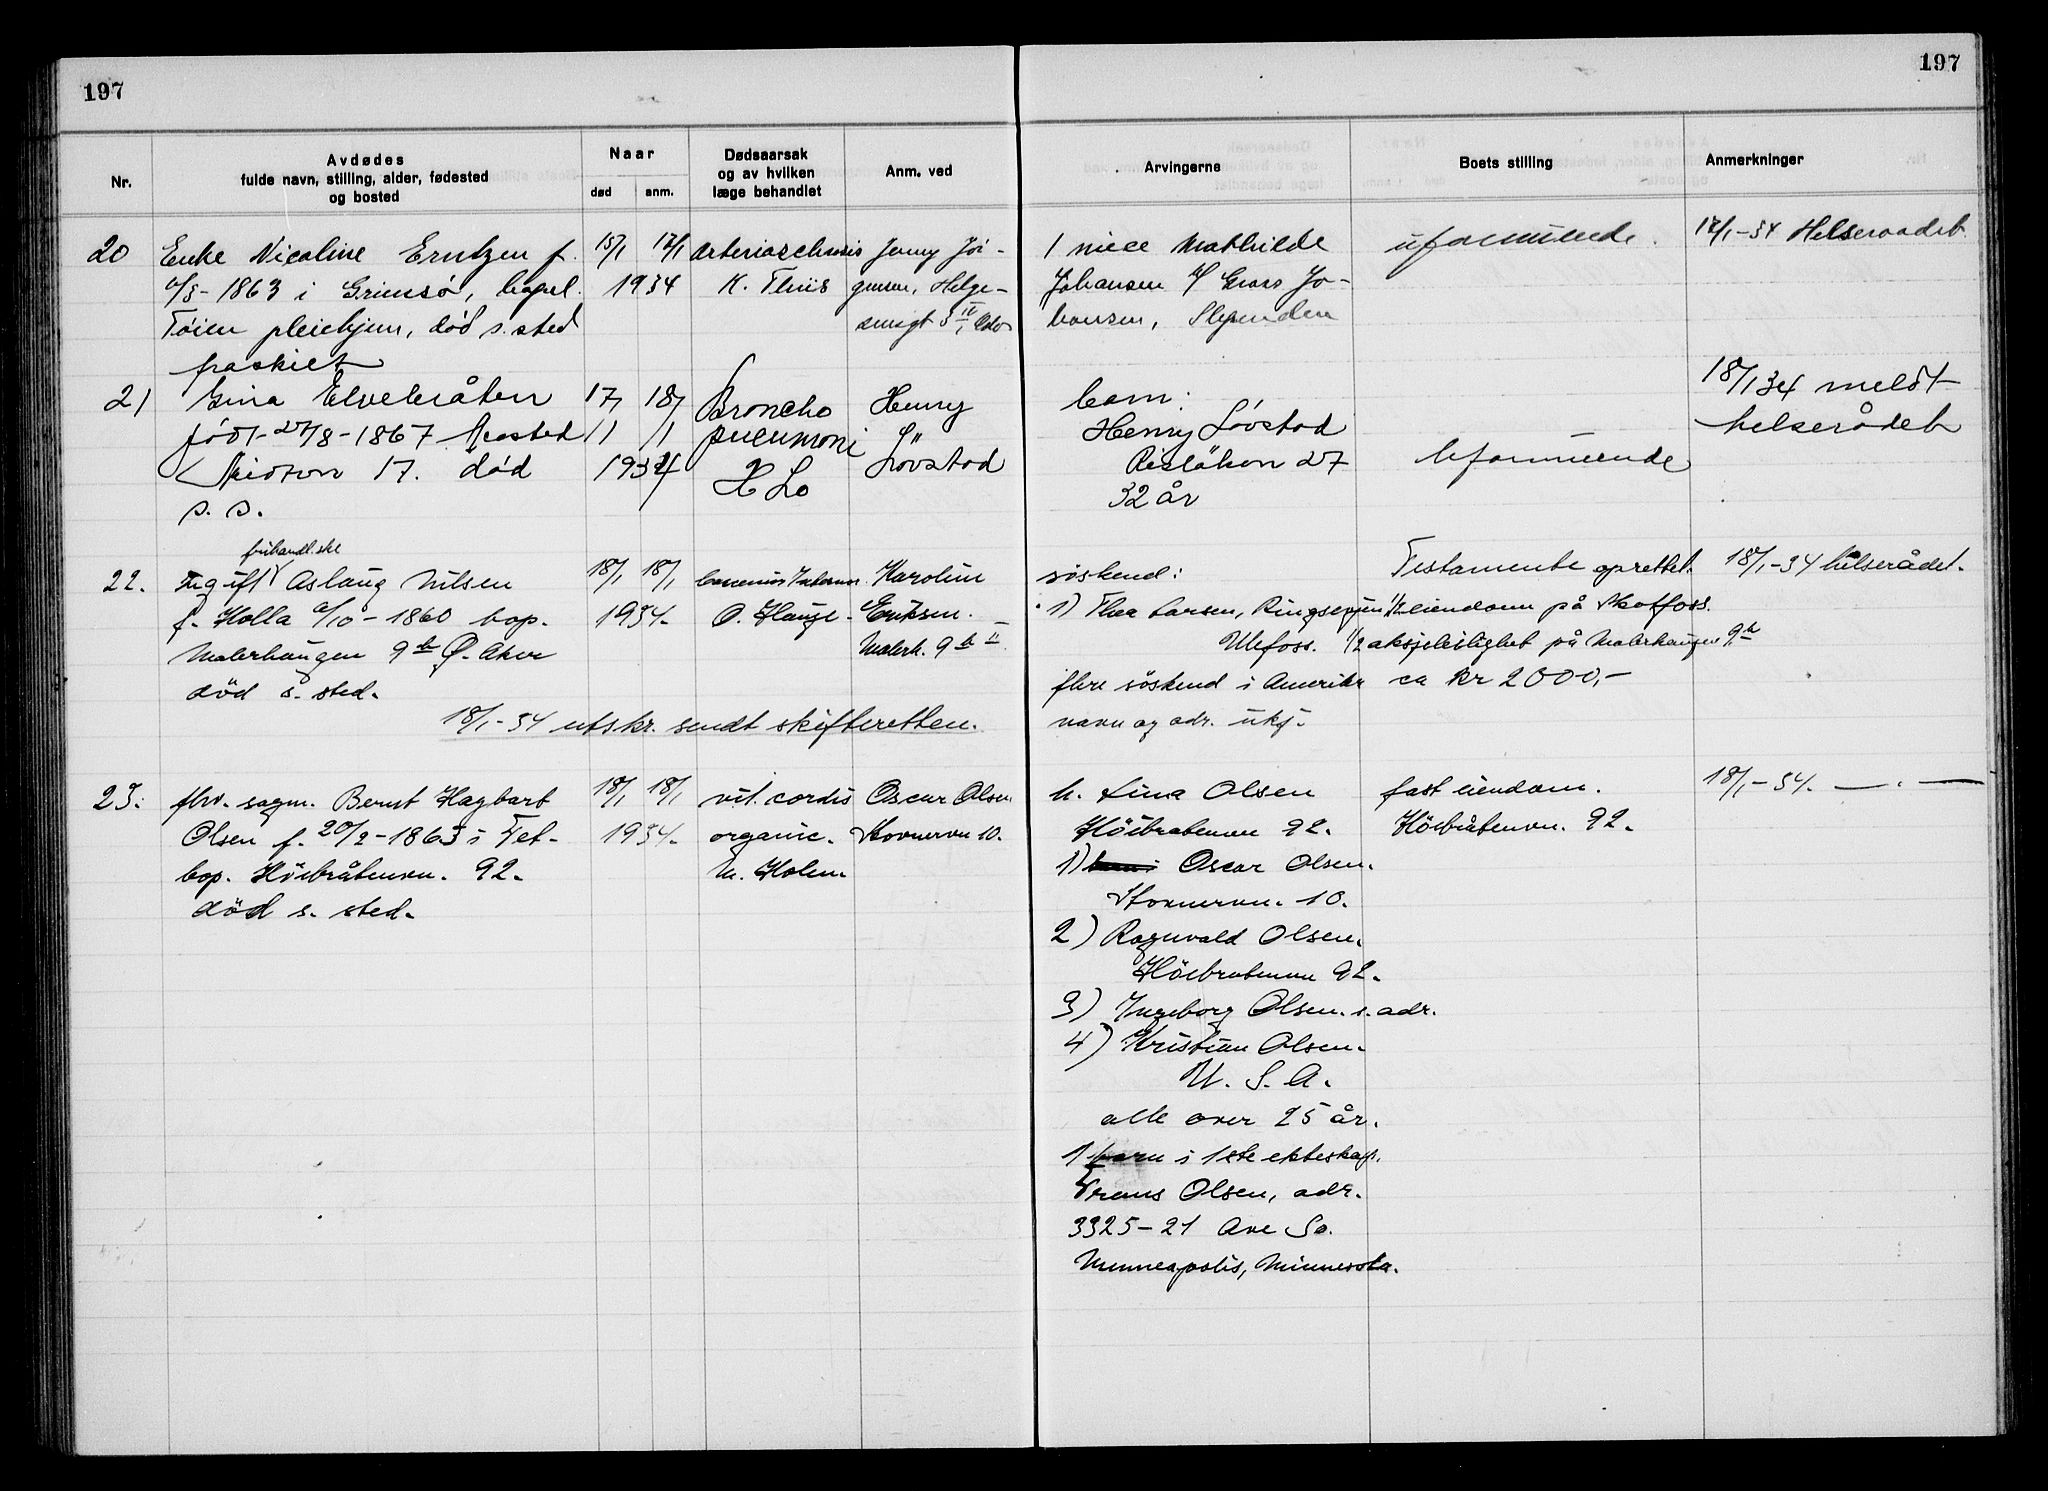 197
197
Nr.
Avdødes
fulde navn, stilling, alder, fødested
og bosted
Naar
død
anm.
Dødsaarsak
og av hvilken
læge behandlet
Anm. ved
Arvingerne
Boets stilling
Anmerkninger
20
Enke Nicoline Erntzen f.
/5-1863 i Grimsø, bopel
Tøien pleiehjem, død s. sted
fraskilt
15/1 17/1
1934
Arteriosclerosis
K. Thiis
Jenny Jör-
gensen, Helge-
sensgt
1 niece Mathilde
Johansen
hansen, Slependen
uformuende.
17/1-34 Helseraadet
21
Gina Elvebråten
født 27/8-1867
17. död
s. s.
17/1 18/1
1934
Broncho
pneumoni
H Lo
Henry
Lövstad
barn:
Henry Lövstad
Risløkken 27
32 år
Uformuende
18/1 34 meldt
helserådet
22.
frihandl.ske
Ugift Aslaug Nilsen
f. Holla /10-1860 bop.
Malerhaugen 9b Ø. Aker
död s. sted.
18/1-34 utskr. sendt skifteretten.
18/1 18/1
1934.
O. Hauge.
Karoline
Eriksen.
Malerh. 9b II
söskend:
1) Thea Larsen, Ringsevjen
Ulefoss.
flere söskend i Amerika
navn og adr. ukj.
Testamente oprettet.
1/2 eiendom på Skotfoss.
1/2 aksjeleilighet på Malerhaugen 9b
ca kr 2000,-
18/1-34 helserådet.
23.
fhv. sagm. Bernt Hagbart
Olsen f. 20/2-1863 i Fet-
bop. Höibråtenvn. 92.
död s. sted.
18/1 18/1
1934.
vit. cordis
organic.
M. Holm.
Oscar Olsen
Stovnervn 10.
h. Lina Olsen
Höibratenvn 92.
1) Oscar Olsen.
Stovnervn. 10.
2) Ragnvald Olsen.
Höibratenvn 92.
3) Ingeborg Olsen. s. adr.
4) Kristian Olsen.
U. S. A.
alle over 25 år.
1 barn i 1ste ekteskap.
Frans Olsen, adr.
3325-21 Ave So.
Minneapolis, Minnesota.
fast eiendom.
Höibråtenvn. 92.
18/1-34. — . —